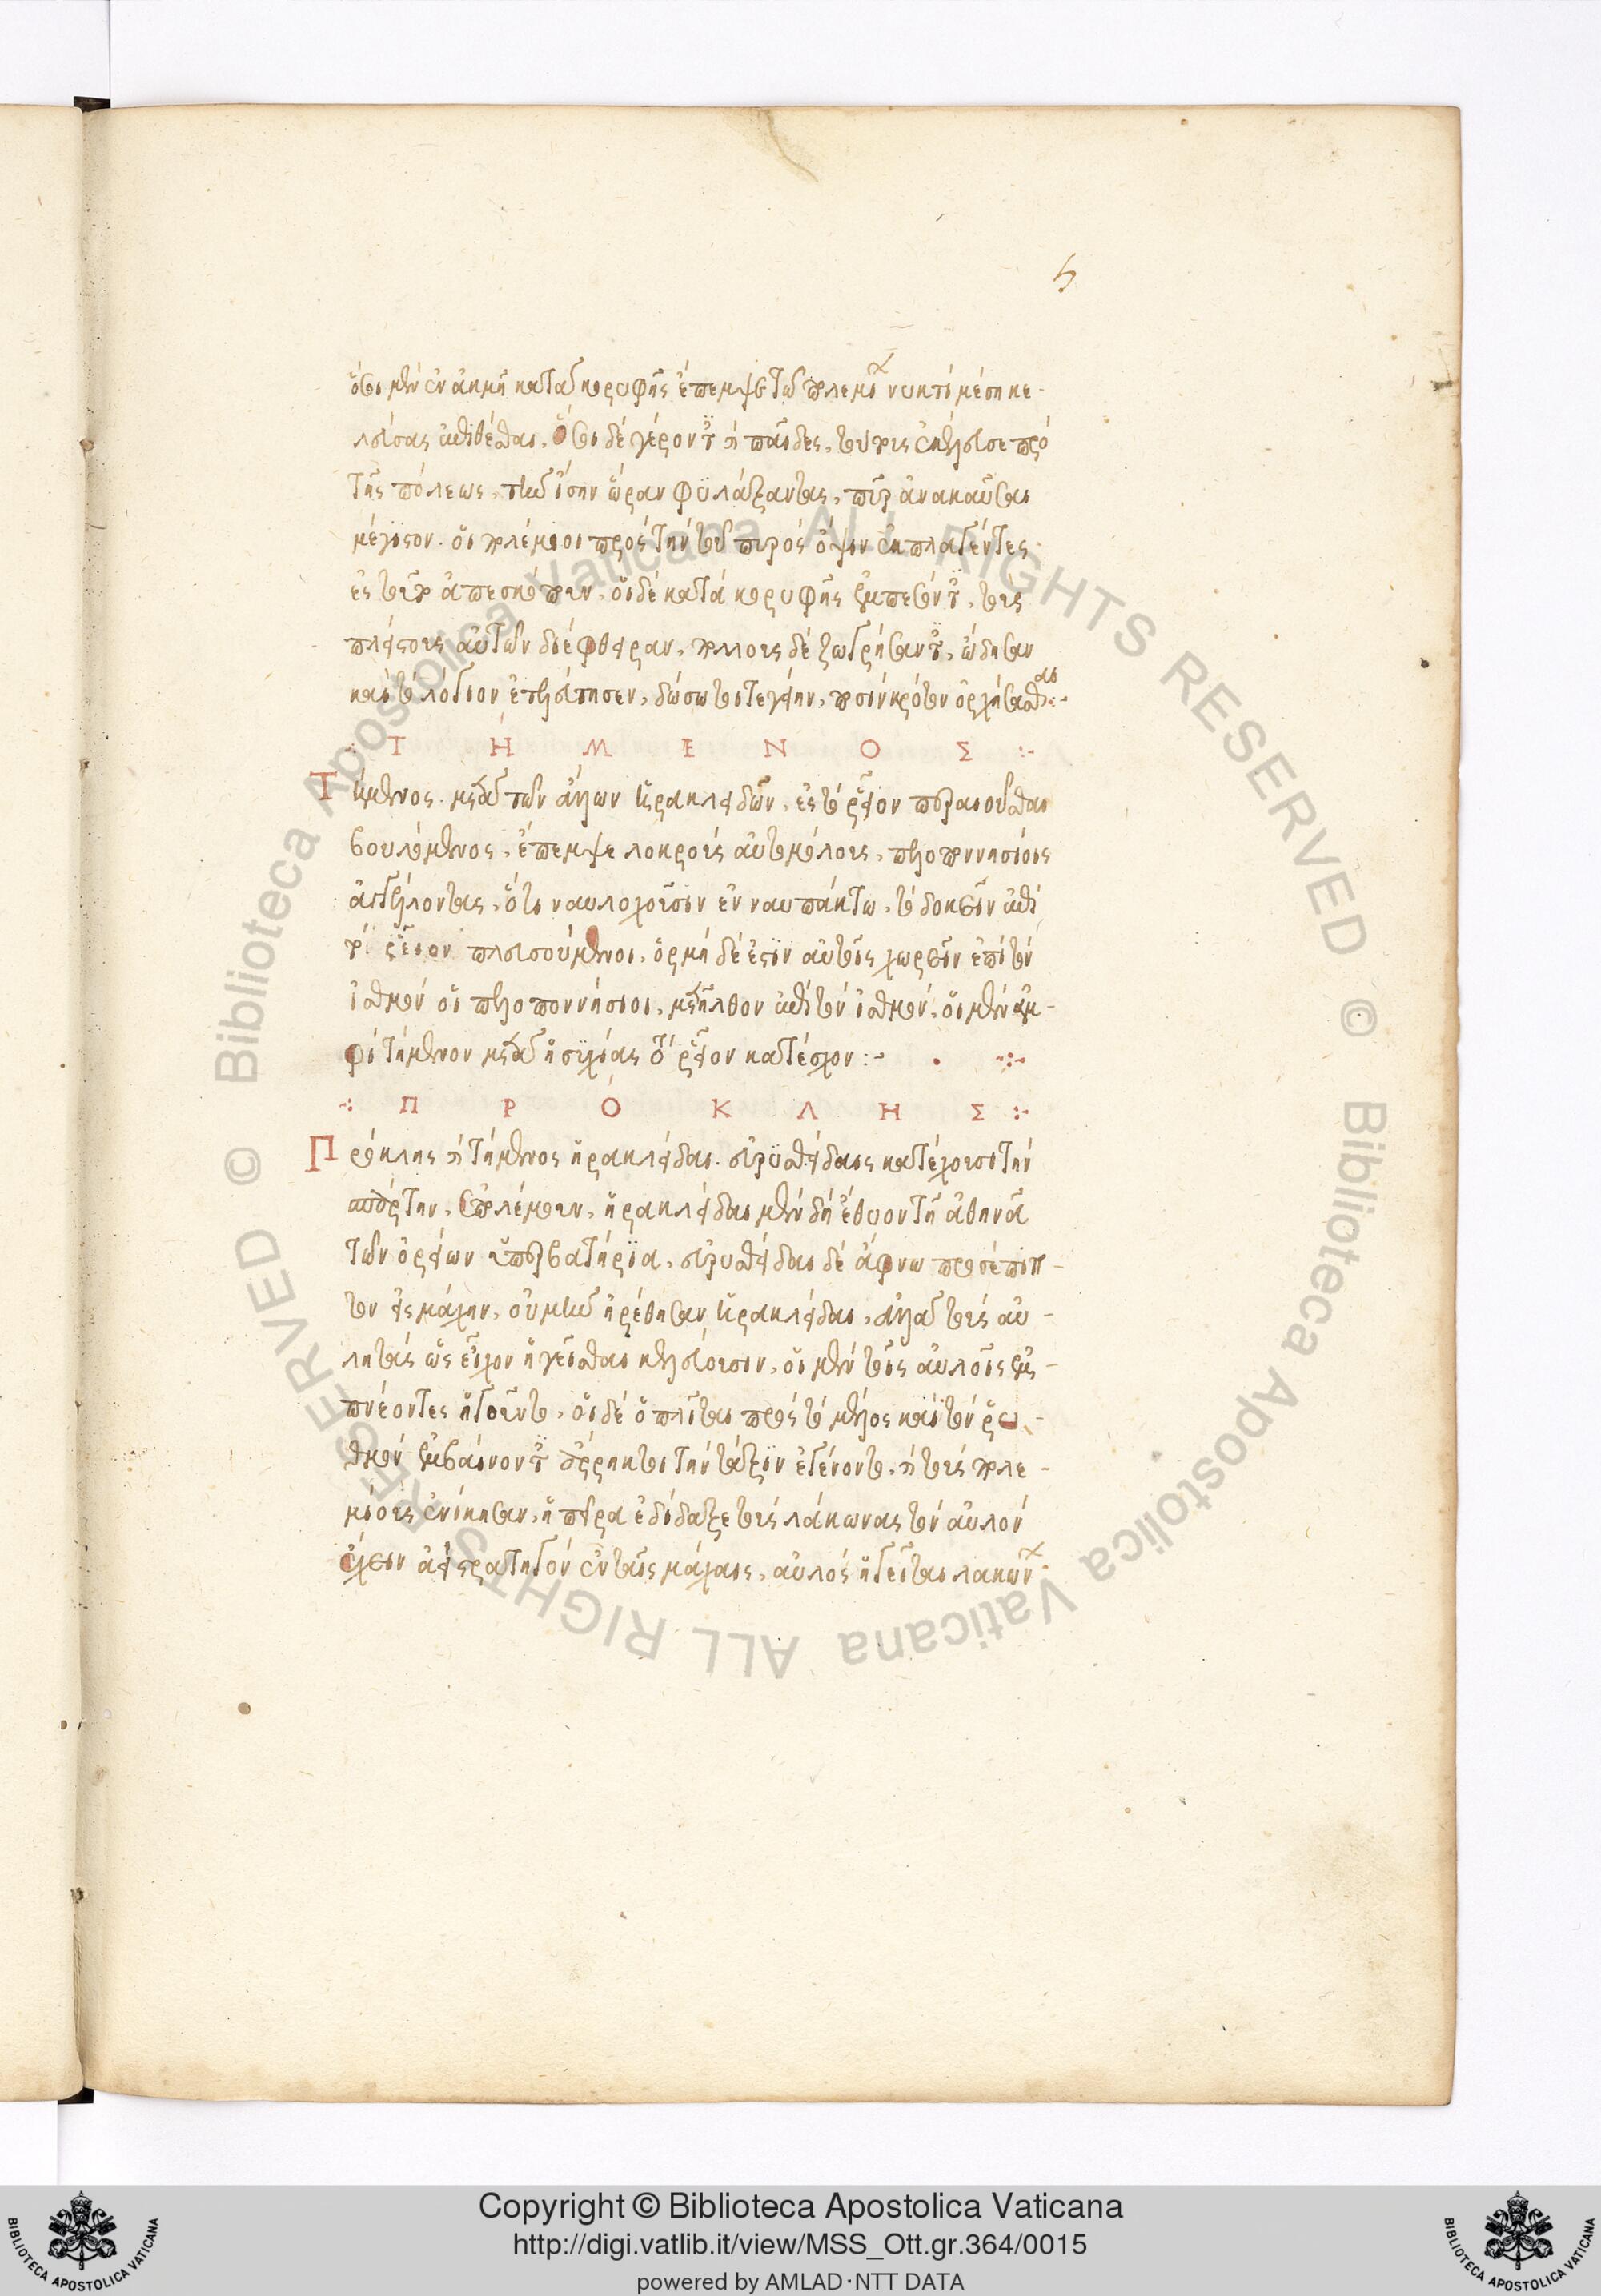 ὅσοι μὲν ἐν ἀκμῇ κατὰ κορυφῆς ἔπεμψε τῶν πολεμίων νυκτὶ μέση κε-
λεύσας ἐπιθέσθαι. ὅσοι δὲ γέροντες καὶ παῖδες, τούτοις ἐκέλευσε πρὸ
τῆς πόλεως, τὴν ἴσην ὥραν φϋλάξαντας, πῦρ ἀνακαῦσαι
μέγιστον. οἱ πολέμιοι πρὸς τὴν τοῦ πυρὸς ὄψιν ἐκπλαγέντες
ἐς τοῦτο ἀπεσκόπουν, οἱ δὲ κατὰ κορυφῆς ἐμπεσόντες, τοὺς
πλείστους αὐτῶν διέφθειραν, πολλοὺς δὲ ζωγρήσαντες, ὤδησαν
καὶ τὸ λόγιον ἐτελεύτησεν, δώσω τοι τεγείην, ποσίν κρότον ὀρχήσασθαι :-
·: Τ Η Μ Ε Ν Ο Σ :·
Τήμενος. μετὰ τῶν ἄλλων ἡρακλειδῶν, ἐς τὸ ῥεῖον περαιοῦσθαι
βουλόμενος, ἔπεμψε λοκροὺς αὐτομόλους, πελοποννησίοις
ἀγγέλοντας, ὅτι ναυλοχοῦσιν ἐν ναυπάκτω, τὸ δοκεῖν ἐπὶ
τὸ ῥεῖον πλευσούμενοι, ὁρμὴ δέ ἐστιν αὐτοῖς χωρεῖν ἐπὶ τὸν
ἰσθμόν οἱ πελοποννήσιοι, μετῆλθον ἐπὶ τὸν ἰσθμόν, οἱ μὲν ἀμ-
φὶ τήμενον μετὰ ἡσυχίας τὸ ῥεῖον κατέσχον :-
·: Π Ρ Ό Κ Λ Η Σ :·
Προκλῆς καὶ τήμενος ἡρακλεῖδαι. εὐρϋσθείδαις κατέχουσι τὴν
σπάρτην, ἐπολέμουν, ἡρακλεῖδαι μὲν δὴ ἔθυον τῇ ἀθηνᾶ
τῶν ὀρείων ὑπερβατήρια, εὐρυσθεῖδαι δὲ ἄφνω προσέπιπ-
τον εἰς μάχην, οὐ μὴν ἡρέθησαν ἡρακλεῖδαι, ἀλλὰ τοὺς αὐ-
λητὰς ὡς εἶχον ἡγεῖσθαι κελεύουσιν, οἱ μὲν τοῖς αὐλοῖς ἐμ-
πνέοντες ἡγοῦντο, οἱ δὲ ὁπλῖται πρὸς τὸ μέλος καὶ τὸν ῥυ-
θμὸν ἐμβαίνοντες ἄρρηκτοι τὴν τάξιν ἐγένοντο, καὶ τοὺς πολε-
μίους ἐνίκησαν, ἡ πεῖρα ἐδίδαξε τοὺς λάκωνας τὸν αὐλὸν
ἔχειν ἀεὶ στρατηγὸν ἐν ταῖς μάχαις, αὐλὸς ἡγεῖται λακώνων
Copyright © Biblioteca Apostolica Vaticana
http://digi.vatlib.it/view/MSS_Ott.gr.364/0015
powered by AMLAD·NTT DATA